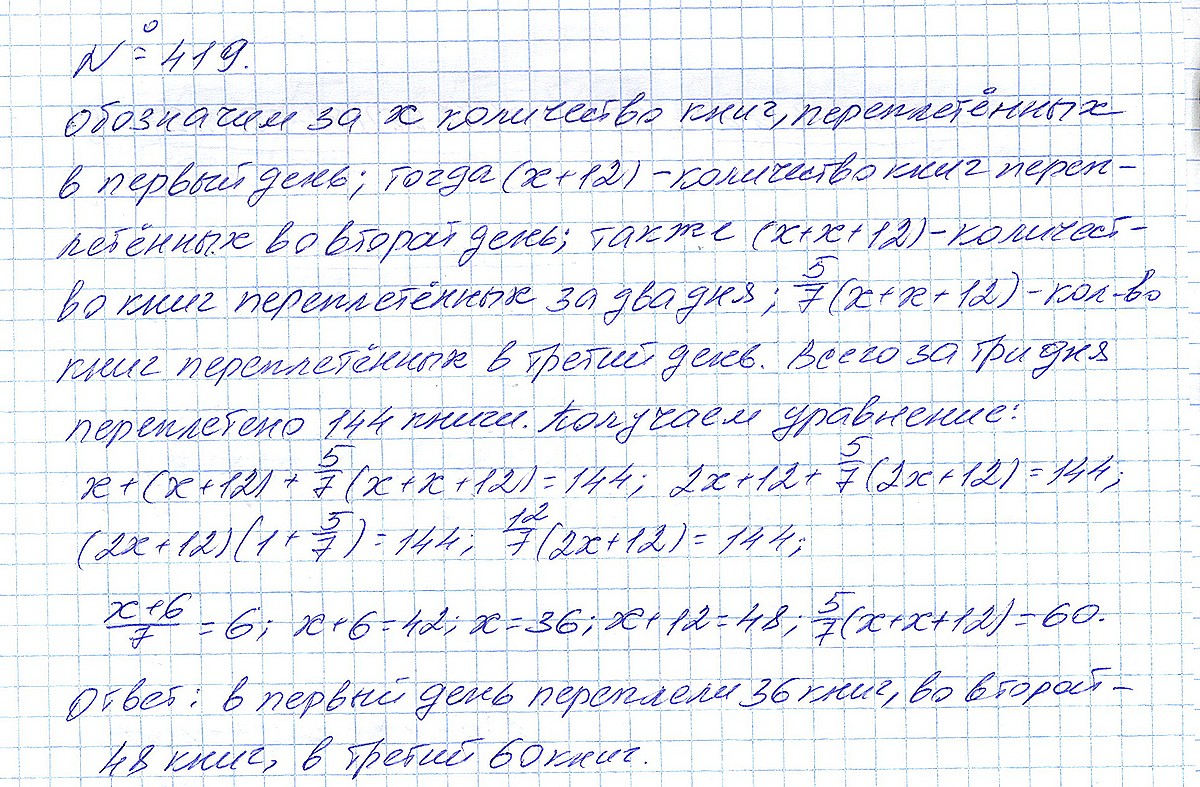 № 419.
Обозначим за x количество книг, переплетённых
в первый день; тогда (x+12) – количество книг переп-
летённых во второй день; также (x+x+12) – количест-
во книг переплетённых за два дня; 5/7(x+x+12) – кол-во
книг переплетённых в третий день. Всего за три дня
переплетено 144 книги. Получаем уравнение:
x+(x+12)+5/7(x+x+12)=144; 2x+12+5/7(2x+12)=144;
(2x+12)(1+5/7)=144; 12/7(2x+12)=144;
(x+6)/7=6; x+6=42; x=36; x+12=48; 5/7(x+x+12)=60.
Ответ: в первый день переплели 36 книг, во второй –
48 книг, в третий 60 книг.